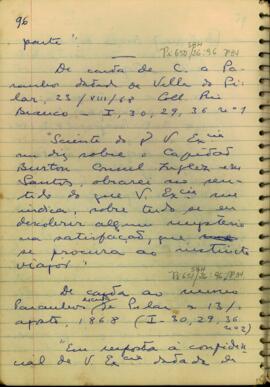 96
parte".
SBH
Pi 650/26:96 P.84
De carta de C. a Pa-
ranhos datada de Villa do Pi-
lar, 23/VIII/68 Coll. Rio
Branco - I, 30, 29, 36 nº 1
"Sciente do q V. Excia
me diz sobre o Capitão
Burton Consul Inglez em
Santos, obrarei no sen-
tido do que V. Excia me
indica, sobre tudo se eu
descobrir algum mysterio
na satisfação, que
se procura ao instincto
viajor."
SBH
Pi 650/26:96, P.84
De carta ao mesmo
Paranhos escrita de Pilar a 13/
agosto, 1868 (I-30, 29, 36
nº 2)
"Em resposta á confiden-
cial de V. Excia datada de